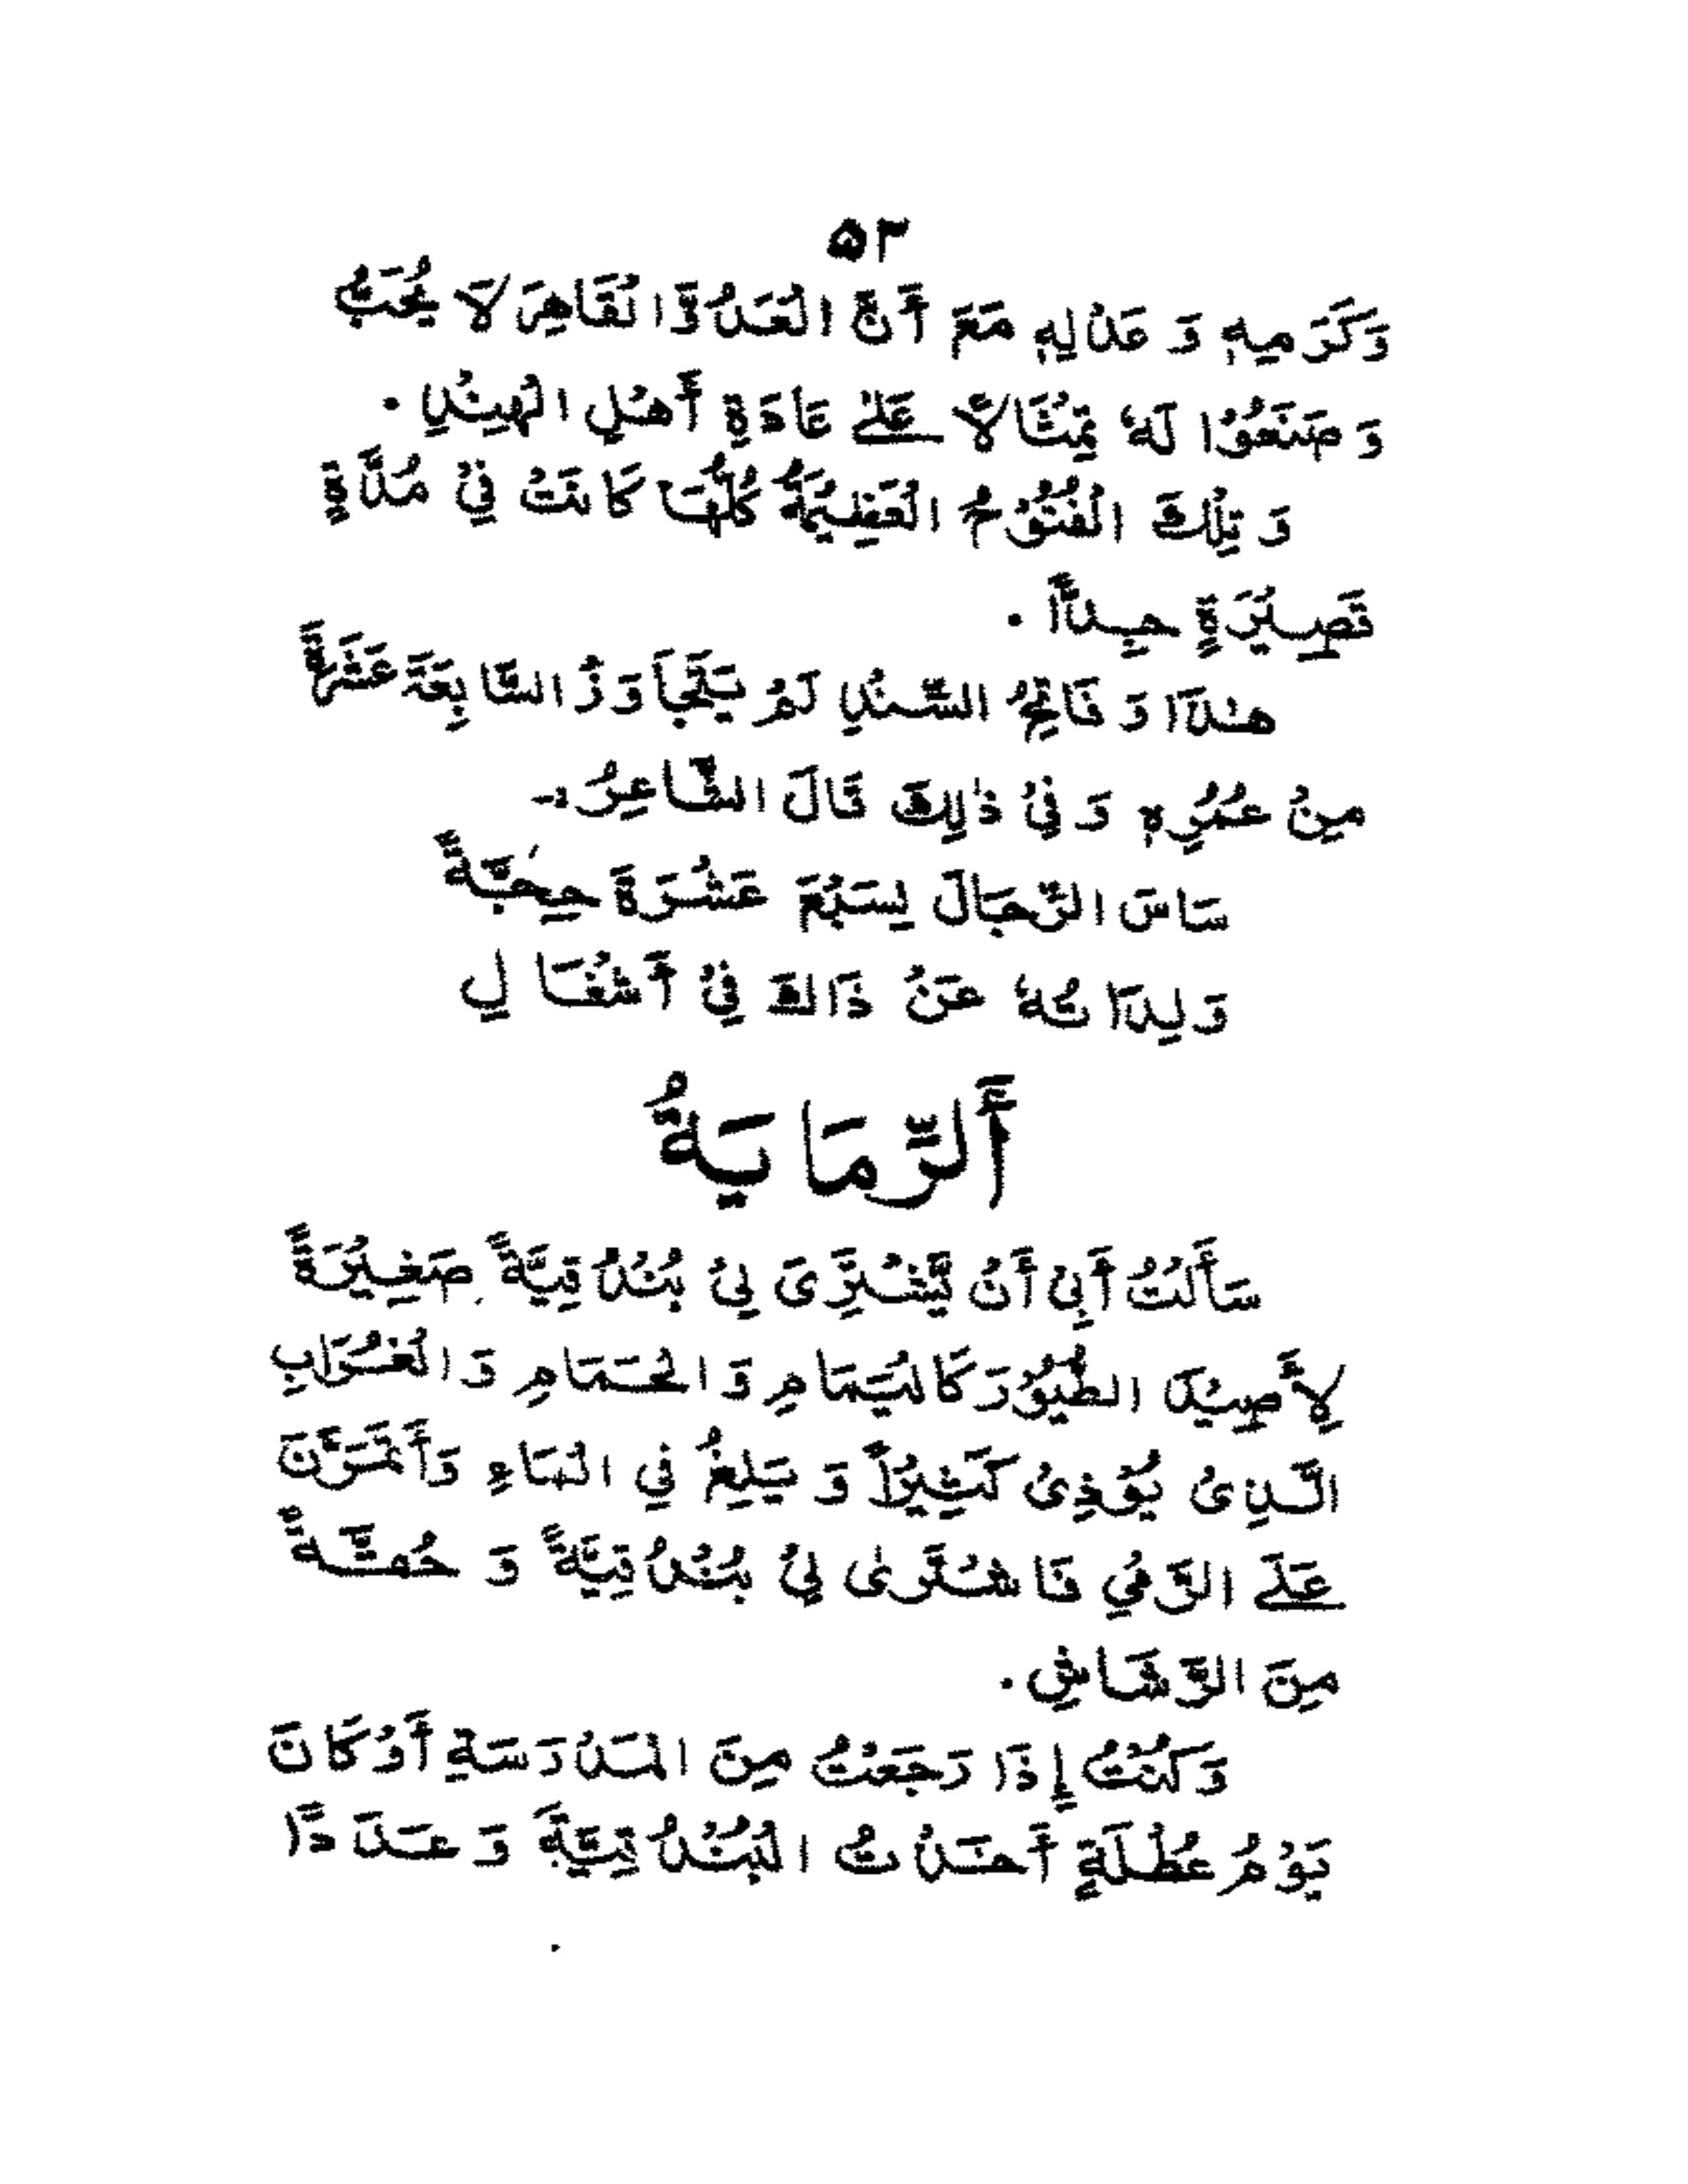 ٥٣
وَكَرَمِهٖ وَ عَدْلِهٖ مَعَ أَنَّ الْعَدُوَّ الْقَاهِرَ لَا يُحَبُّ
وَ صَنَعُوْا لَهٗ تِمْثَالًا عَلٰى عَادَةِ أَهْلِ الْهِنْدِ .
وَ تِلْكَ الْفُتُوْحُ الْعَظِيْمَةُ كُلُّهَا كَانَتْ فِيْ مُدَّةٍ
قَصِيْرَةٍ جِدًّا .
هٰذَا وَ فَاتِحُ السِّنْدِ لَمْ يَتَجَاوَزْ السَّابِعَةَ عَشْرَةً
مِنْ عُمُرِهٖ وَ فِيْ ذٰلِكَ قَالَ الشَّاعِرُ :-
سَاسَ الرِّجَالَ لِسَبْعَ عَشْرَةَ حِجَّةً
وَلِدَاتُهٗ عَنْ ذَاكَ فِيْ أَشْغَالِ
أَلرِّمَايَةُ
سَأَلْتُ أَبِيْ أَنْ يَّشْتَرِىَ لِيْ بُنْدُقِيَّةً صَغِيْرَةً
لِأَصِيْدَ الطُّيُوْرَ كَالْيَمَامِ وَ الْحَمَامِ وَ الْغُرَابِ
الَّذِىْ يُؤْذِىْ كَثِيْرًا وَ يَلِغُ فِي الْمَاءِ وَأَتَمَرَّنَ
عَلَى الرَّمْيِ فَاشْتَرٰى لِيْ بُنْدُقِيَّةً وَ حُقَّةً
مِنَ الرَّشَاشِ .
وَكُنْتُ إِذَا رَجَعْتُ مِنَ الْمَدْرَسَةِ أَوْ كَانَ
يَوْمُ عُطْلَةٍ أَخَذْتُ الْبُنْدُقِيَّةَ وَ عَدَدًا